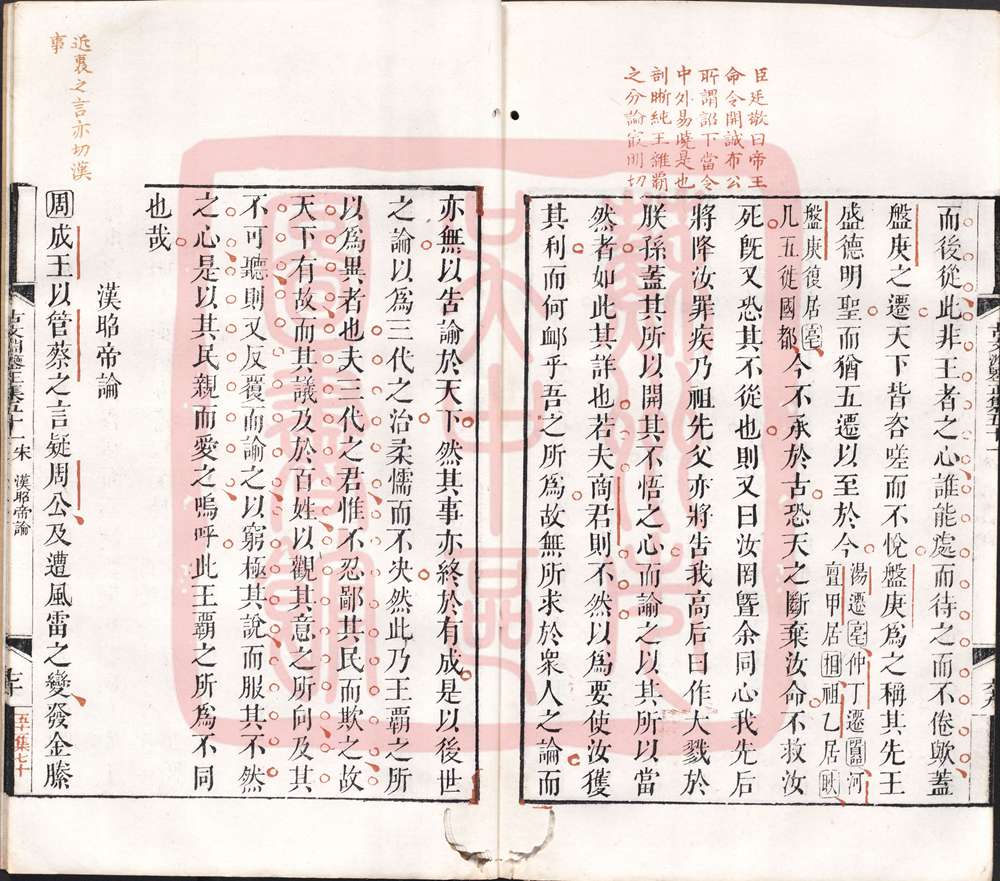 臣廷敬曰帝王
命令開誠布公
所謂詔下當令
中外易曉是也
剖晰純王雜霸
之分論最明切
而後從此非王者之心誰能處而待之而不倦歟蓋
盤庚之遷天下皆咨嗟而不悅盤庚爲之稱其先王
盛德明聖而猶五遷以至於今湯遷亳仲丁遷囂河
亶甲居相祖乙居耿
盤庚復居亳
凡五徙國都今不承於古恐天之斷棄汝命不救汝
死旣又恐其不從也則又曰汝罔曁余同心我先后
將降汝罪疾乃祖先父亦將告我高后曰作大戮於
朕孫蓋其所以開其不悟之心而諭之以其所以當
然者如此其詳也若夫商君則不然以爲要使汝獲
其利而何卹乎吾之所爲故無所求於衆人之論而
亦無以告諭於天下然其事亦終於有成是以後世
之論以爲三代之治柔懦而不決然此乃王霸之所
以爲異者也夫三代之君惟不忍鄙其民而欺之故
天下有故而其議及於百姓以觀其意之所向及其
不可聽則又反覆而諭之以窮極其說而服其不然
之心是以其民親而愛之嗚呼此王霸之所爲不同
也哉
漢昭帝論
近裏之言亦切漢
事
周成王以管蔡之言疑周公及遭風雷之變發金縢
宋 漢昭帝論
七十
五十一集七十